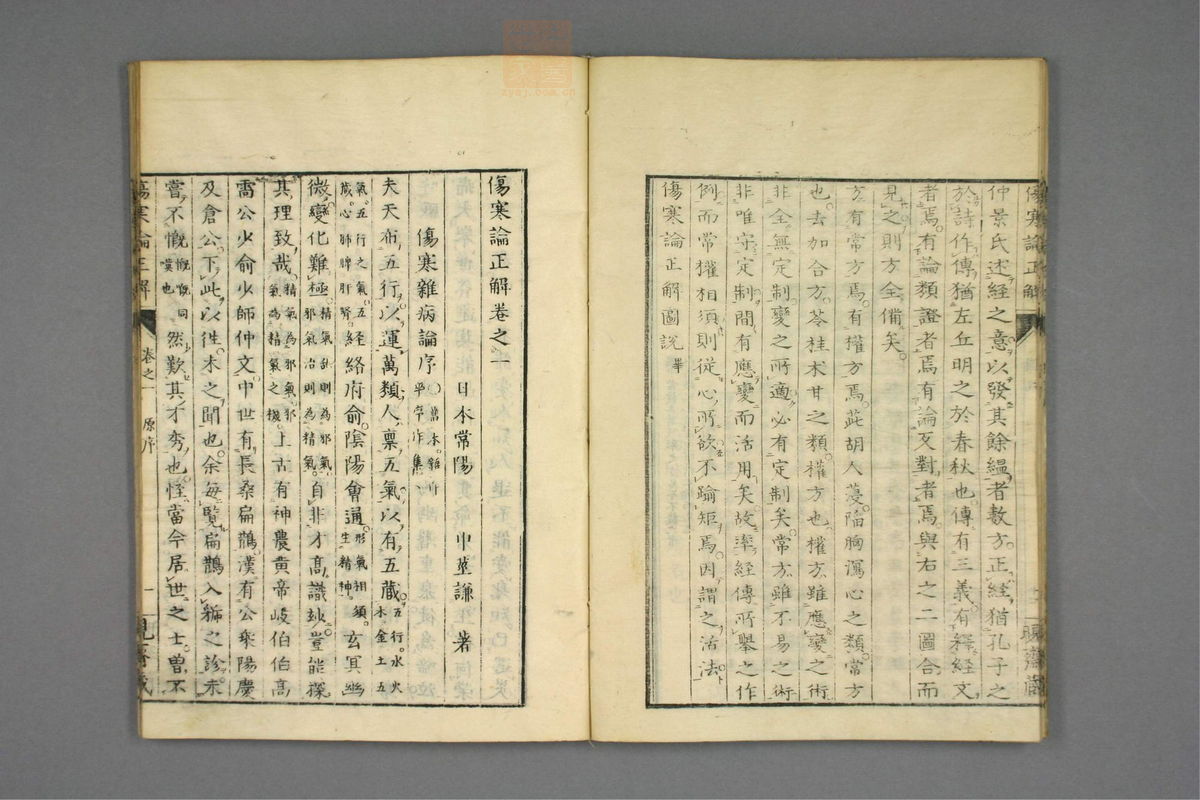 仲景氏述經之意以發其餘縕者數方正經猶孔子之
於詩作傳猶左丘明之於春秋也傳有三義有釋經文
者焉有論類證者焉有論反對者焉與右之二圖合而
見之則方全備矣
方有常方焉有權方焉茈胡人蓡陷胸瀉心之類常方
也去加合方苓桂朮甘之類權方也權方雖應變之術
非全無定制變之所適必有定制矣常方雖不易之術
非唯守定制間有應變而活用矣故率經傳所擧之作
例而常權相須則從心所欲不踰矩焉因謂之活法
傷寒論正解圖説畢
傷寒論正解卷之一
日本常陽 中莖謙 著
傷寒雜病論序
夫天布五行以運萬類人稟五氣以有五藏五行水火木金土五
氣五行之氣五藏心肺脾肝腎經絡府俞陰陽會通形氣相須生精神玄冥幽
微變化難極精氣乱則為邪氣邪氣治則為精氣自非才高識玅豈能探
其理致哉精氣為邪氣邪氣為精氣之機上古有神農黄帝岐伯伯高
雷公少俞少師仲文中世有長桑扁鵲漢有公乘陽慶
及倉公下此以徃未之聞也余每覽扁鵲入虢之診未
嘗不慨慨慨同嘆也然歎其才秀也怪當今居世之士曽不
傷寒論正解
卷之一 原序
一